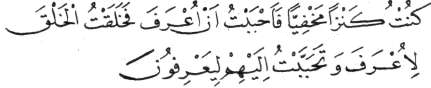 كُنْتُ كَنْزاً مَخْفِيًّا فَاَحْبَبْتُ اَنْ اُعْرَفَ فَخَلَقْتُ الْخَلْقَ
لِاُعْرَفَ وَ تَحَبَّبْتُ اِلَيْهِمْ لِيَعْرِفُونِ